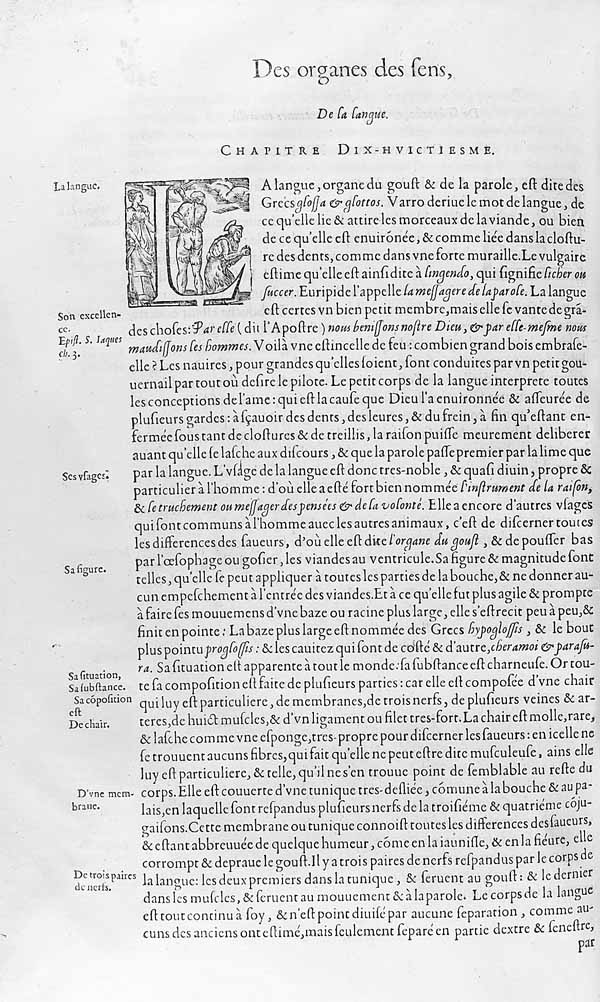 Des organes des ſens,
De la langue.
CHAPITRE DIX-HVICTIESME.
La langue.
LA langue, organe du gouſt & de la parole, eſt dite des
Grecs gloſſa & glottos. Varro deriue le mot de langue, de
ce qu'elle lie & attire les morceaux de la viande, ou bien
de ce qu'elle eſt enuirónée, & comme liée dans la cloſtu-
re des dents, comme dans vne forte muraille. Le vulgaire
eſtime qu'elle eſt ainſi dite à lingendo, qui ſignifie licher ou
ſuccer. Euripide l'appelle la meſſagere de la parole. La langue
Son excellen-
ce.
eſt certes vn bien petit membre, mais elle ſe vante de grã-
Epiſt. S. Iaques
ch. 3.
des choſes: Par elle (dit l'Apoſtre) nous beniſſons noſtre Dieu, & par elle-meſme nous
maudiſſons les hommes. Voilà vne eſtincelle de feu: combien grand bois embraſe-
elle? Les nauires, pour grandes qu'elles ſoient, ſont conduites par vn petit gou-
uernail par tout où deſire le pilote. Le petit corps de la langue interprete toutes
les conceptions de l'ame: qui eſt la cauſe que Dieu l'a enuironnée & aſſeurée de
pluſieurs gardes: à ſçauoir des dents, des leures, & du frein, à fin qu'eſtant en-
fermée ſous tant de cloſtures & de treillis, la raiſon puiſſe meurement deliberer
auant qu'elle ſe laſche aux diſcours, & que la parole paſſe premier par la lime que
Ses vſages.
par la langue. L'vſage de la langue eſt donc tres-noble, & quaſi diuin, propre &
particulier à l'homme: d'où elle a eſté fort bien nommée l'inſtrument de la raiſon,
& le truchement ou meſſager des penſées & de la volonté. Elle a encore d'autres vſages
qui ſont communs à l'homme auec les autres animaux, c'eſt de diſcerner toutes
les differences des ſaueurs, d'où elle eſt dite l'organe du gouſt, & de pouſſer bas
par l'œſophage ou goſier, les viandes au ventricule. Sa figure & magnitude ſont
Sa figure.
telles, qu'elle ſe peut appliquer à toutes les parties de la bouche, & ne donner au-
cun empeſchement à l'entrée des viandes. Et à ce qu'elle fut plus agile & prompte
à faire ſes mouuemens d'vne baze ou racine plus large, elle s'eſtrecit peu à peu, &
finit en pointe: La baze plus large eſt nommée des Grecs hypogloſſis, & le bout
plus pointu progloſſis: & les cauitez qui ſont de coſté & d'autre, cheramoi & paraſu-
Sa ſituation,
Sa ſubſtance.
ra. Sa ſituation eſt apparente à tout le monde: ſa ſubſtance eſt charneuſe. Or tou-
te ſa compoſition eſt faite de pluſieurs parties: car elle eſt compoſée d'vne chair
Sa cópoſition
eſt
De chair.
qui luy eſt particuliere, de membranes, de trois nerfs, de pluſieurs veines & ar-
teres, de huict muſcles, & d'vn ligament ou filet tres-fort. La chair eſt molle, rare,
& laſche comme vne eſponge, tres-propre pour diſcerner les ſaueurs: en icelle ne
ſe trouuent aucuns fibres, qui fait qu'elle ne peut eſtre dite muſculeuſe, ains elle
luy eſt particuliere, & telle, qu'il ne s'en trouue point de ſemblable au reſte du
D'vne mem-
brane.
corps. Elle eſt couuerte d'vne tunique tres-deſliée, cómune à la bouche & au pa-
lais, en laquelle ſont reſpandus pluſieurs nerfs de la troiſiéme & quatriéme cóju-
gaiſons. Cette membrane ou tunique connoiſt toutes les differences des ſaueurs,
& eſtant abbreuuée de quelque humeur, cóme en la iauniſſe, & en la fiéure, elle
corrompt & depraue le gouſt. Il y a trois paires de nerfs reſpandus par le corps de
De trois paires
de nerfs.
la langue: les deux premiers dans la tunique, & ſeruent au gouſt: & le dernier
dans les muſcles, & ſeruent au mouuement & à la parole. Le corps de la langue
eſt tout continu à ſoy, & n'eſt point diuiſé par aucune ſeparation, comme au-
cuns des anciens ont eſtimé, mais ſeulement ſeparé en partie dextre & ſeneſtre,
par